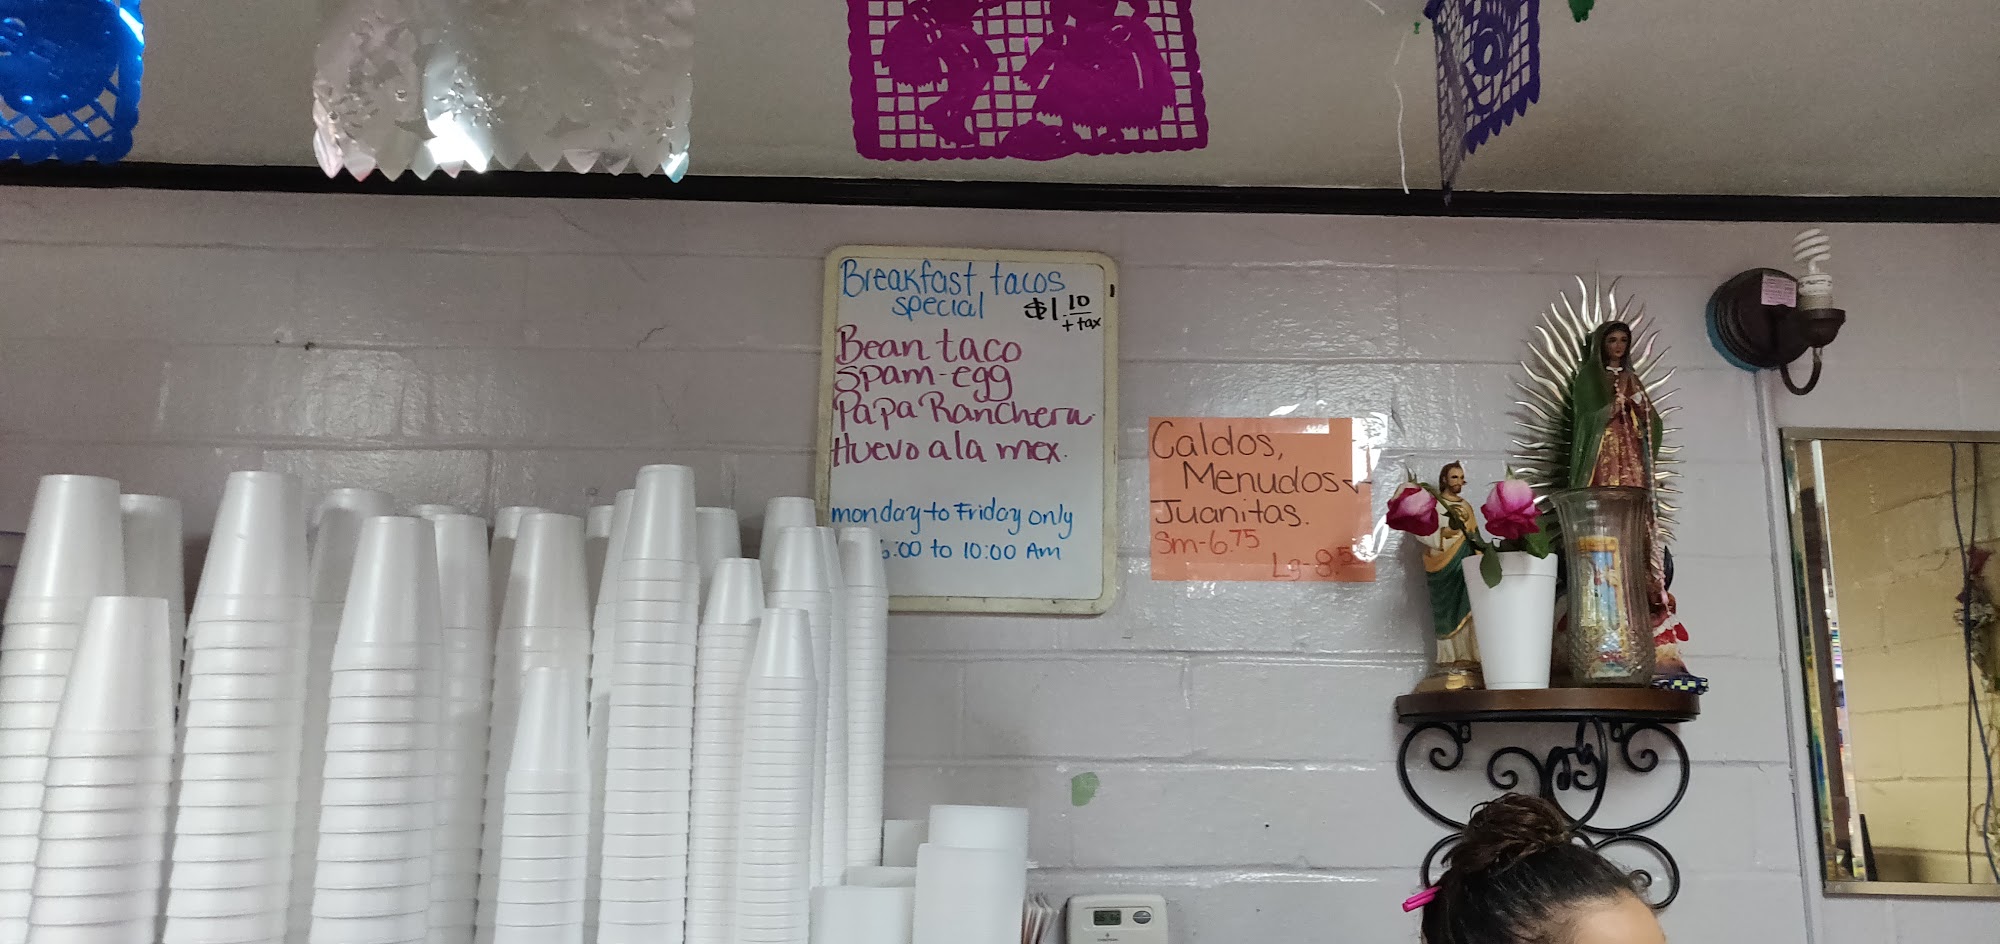 Breakfast tacos
special $1.10
+ tax
Bean taco
Spam-egg
Papa Ranchera
Huevo a la mex.
monday to Friday only
6:00 to 10:00 Am
Caldos,
Menudos
Juanitas.
Sm-6.75
Lg-8.5